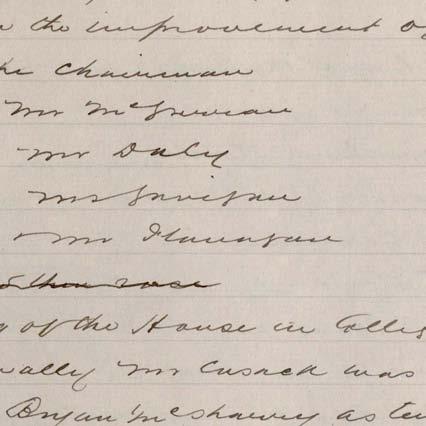 the improvement of
the Chairman
Mr McGreevan
Mr Daly
Mr Garigan
Mr Flanagan
of the House in Colleg
Mr Cusack was
Bryan McSharry as